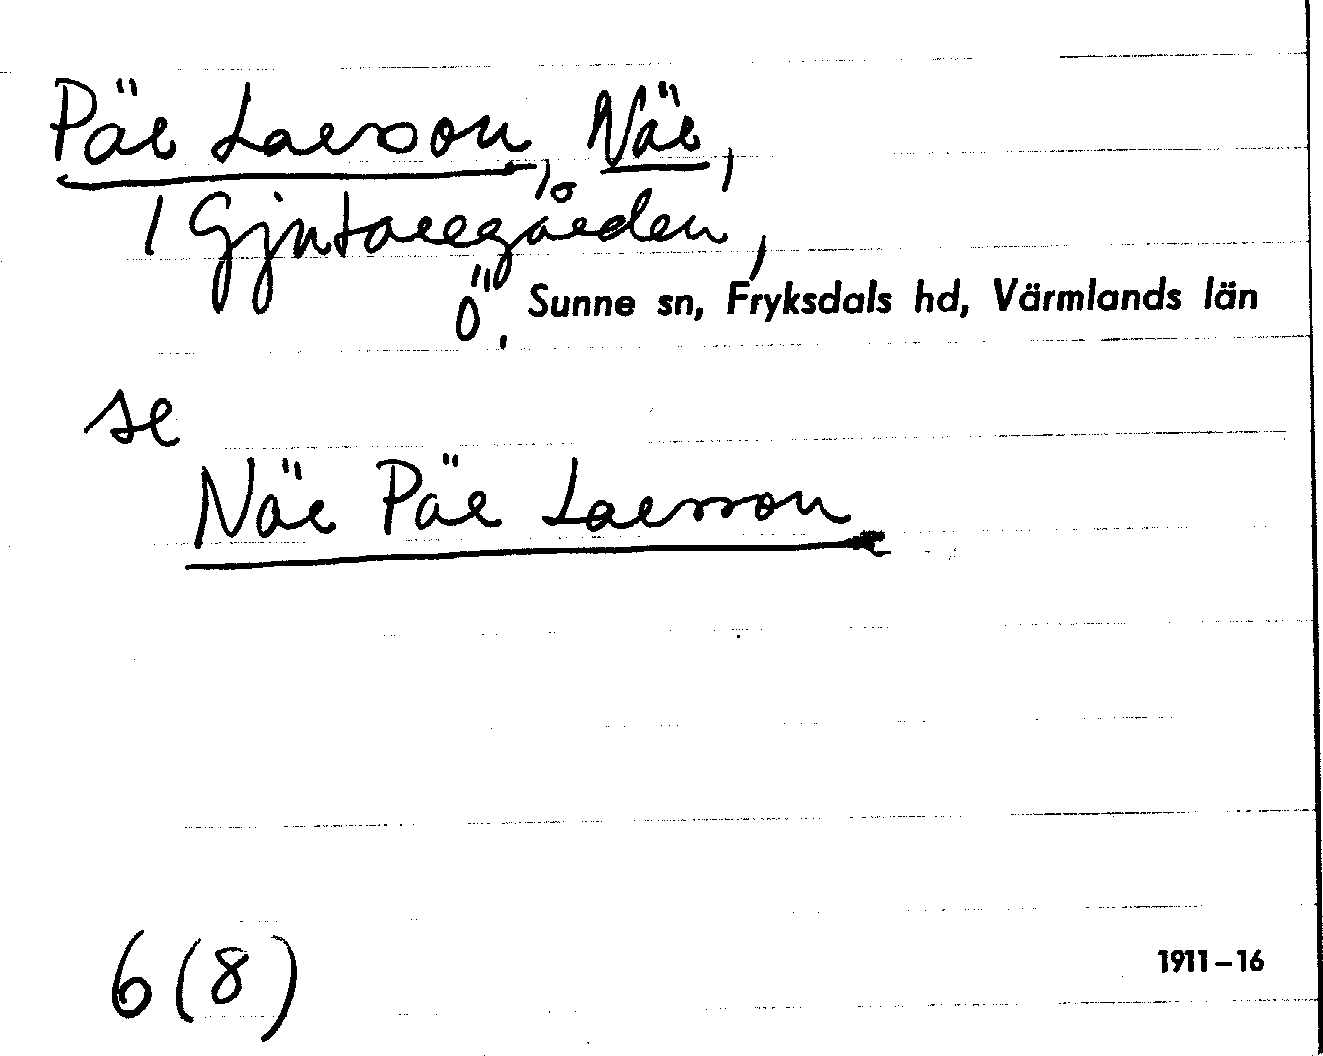 Pär Larsson, När,
i Gjutaregården,
Ö. Sunne sn, Fryksdals hd, Värmlands län
se
När Pär Larsson
6 (8)
1911–16